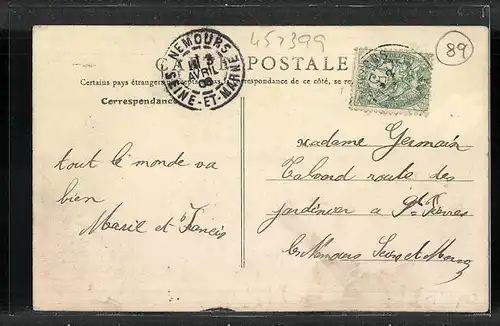 457399
89
CARTE POSTALE
NEMOURS
AVRIL
08
SEINE-ET-MARNE
Certains pays étrangers
correspondance de ce côté, se
Correspondance
tout le monde va
bien
Marie et Francis
Madame Germain
Talvard route des
jardinier a St Pierres
les Nemours Seine et Marne